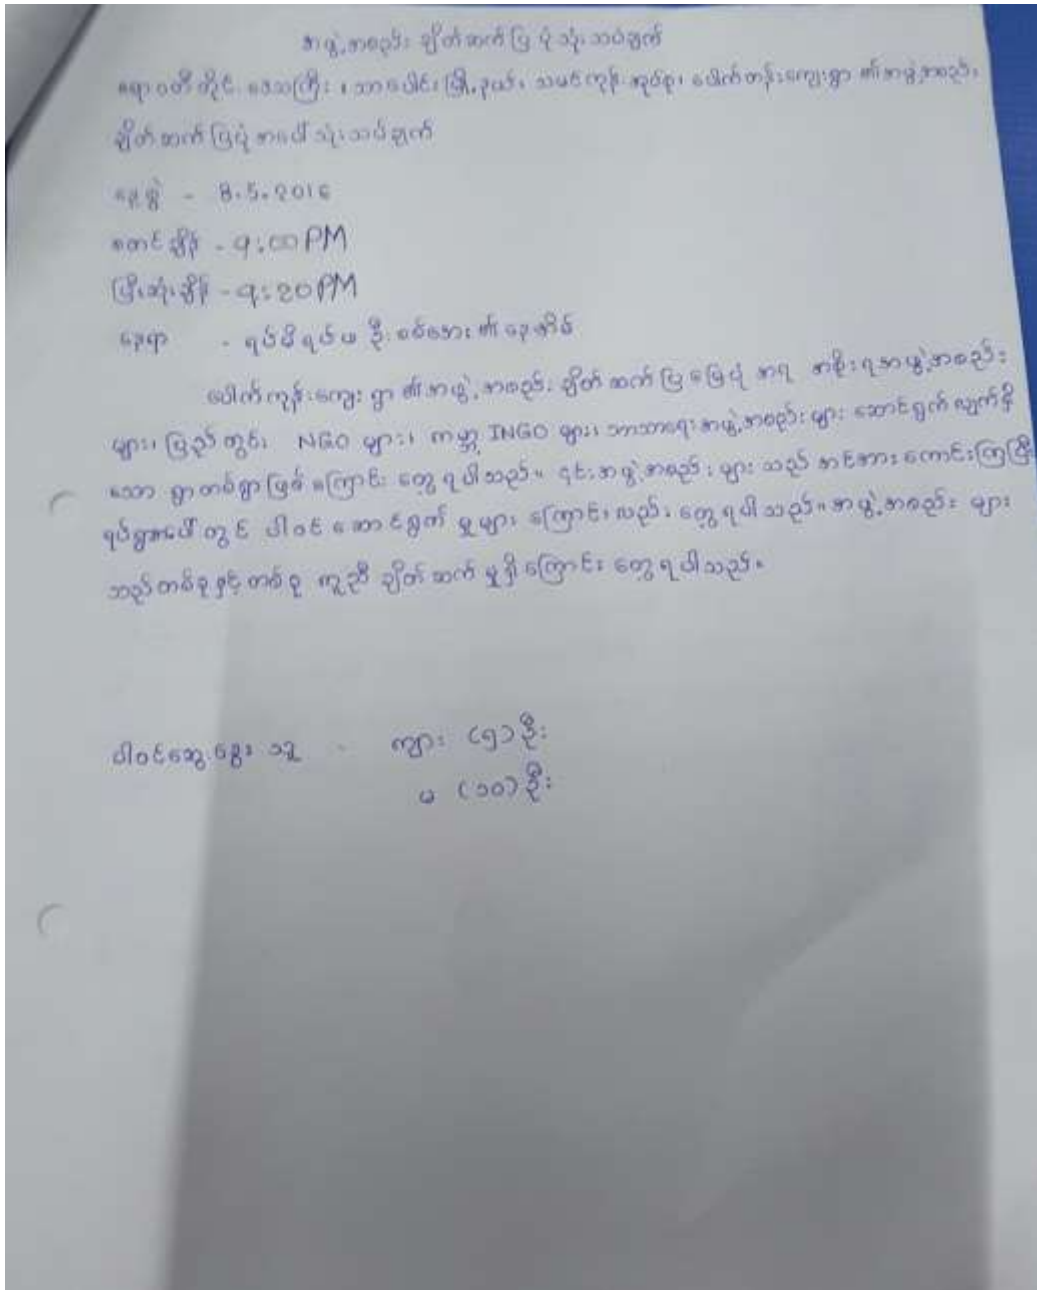 အဖွဲ့အစည်း ချိတ်ဆက်ပြပုံသုံးသပ်ချက်
ဧရာဝတီတိုင်းဒေသကြီး၊ သာပေါင်းမြို့နယ်၊ သမင်ကုန်းအုပ်စု၊ ပေါက်တန်းကျေးရွာ ၏အဖွဲ့အစည်း
ချိတ်ဆက်ပြပုံအပေါ်သုံးသပ်ချက်
နေ့စွဲ - 8.5.2016
စတင်ချိန် - ၎:၀၀ PM
ပြီးဆုံးချိန် - ၎:20 PM
နေရာ - ရပ်မိရပ်ဖ ဦးစစ်အေး ၏နေအိမ်
ပေါက်ကုန်းကျေးရွာ ၏အဖွဲ့အစည်း ချိတ်ဆက်ပြမြေပုံ အရ အစိုးရအဖွဲ့အစည်း
များ၊ ပြည်တွင်း NGO များ၊ ကမ္ဘာ့ INGO များ၊ ဘာသာရေးအဖွဲ့အစည်းများ ဆောင်ရွက်လျက်ရှိ
သော ရွာတစ်ရွာဖြစ်ကြောင်း တွေ့ရပါသည်။ ၎င်းအဖွဲ့အစည်းများသည် အင်အားကောင်းကြပြီး
ရပ်ရွာအပေါ်တွင် ပါဝင်ဆောင်ရွက်မှုများကြောင်းလည်း တွေ့ရပါသည်။ အဖွဲ့အစည်း များ
သည်တစ်ခုနှင့်တစ်ခု ကူညီချိတ်ဆက်မှုရှိကြောင်း တွေ့ရပါသည်။
ပါဝင်ဆွေးနွေးသူ - ကျား (၅) ဦး
မ (၁၀) ဦး